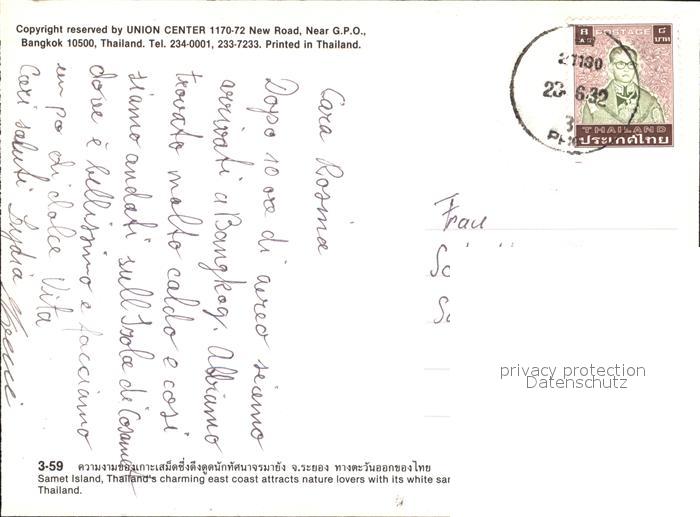 Copyright reserved by UNION CENTER 1170-72 New Road, Near G.P.O.,
Bangkok 10500, Thailand. Tel. 234-0001, 233-7233. Printed in Thailand.
Cara Rosmie
Dopo 10 ore di aereo siamo
arrivati a Bangkog. Abbiamo
trovato molto caldo e così
siamo andati sull'Isola di Cosamet
dove è bellissimo e facciamo
un po di dolce Vita
Cari saluti Lydia
8 BAHT POSTAGE ๘ บาท
THAILAND
ประเทศไทย
21130
23 6.32
3
Frau
privacy protection
Datenschutz
3-59 ความงามของเกาะเสม็ดซึ่งดึงดูดนักทัศนาจรมายัง จ.ระยอง ทางตะวันออกของไทย
Samet Island, Thailand's charming east coast attracts nature lovers with its white
Thailand.